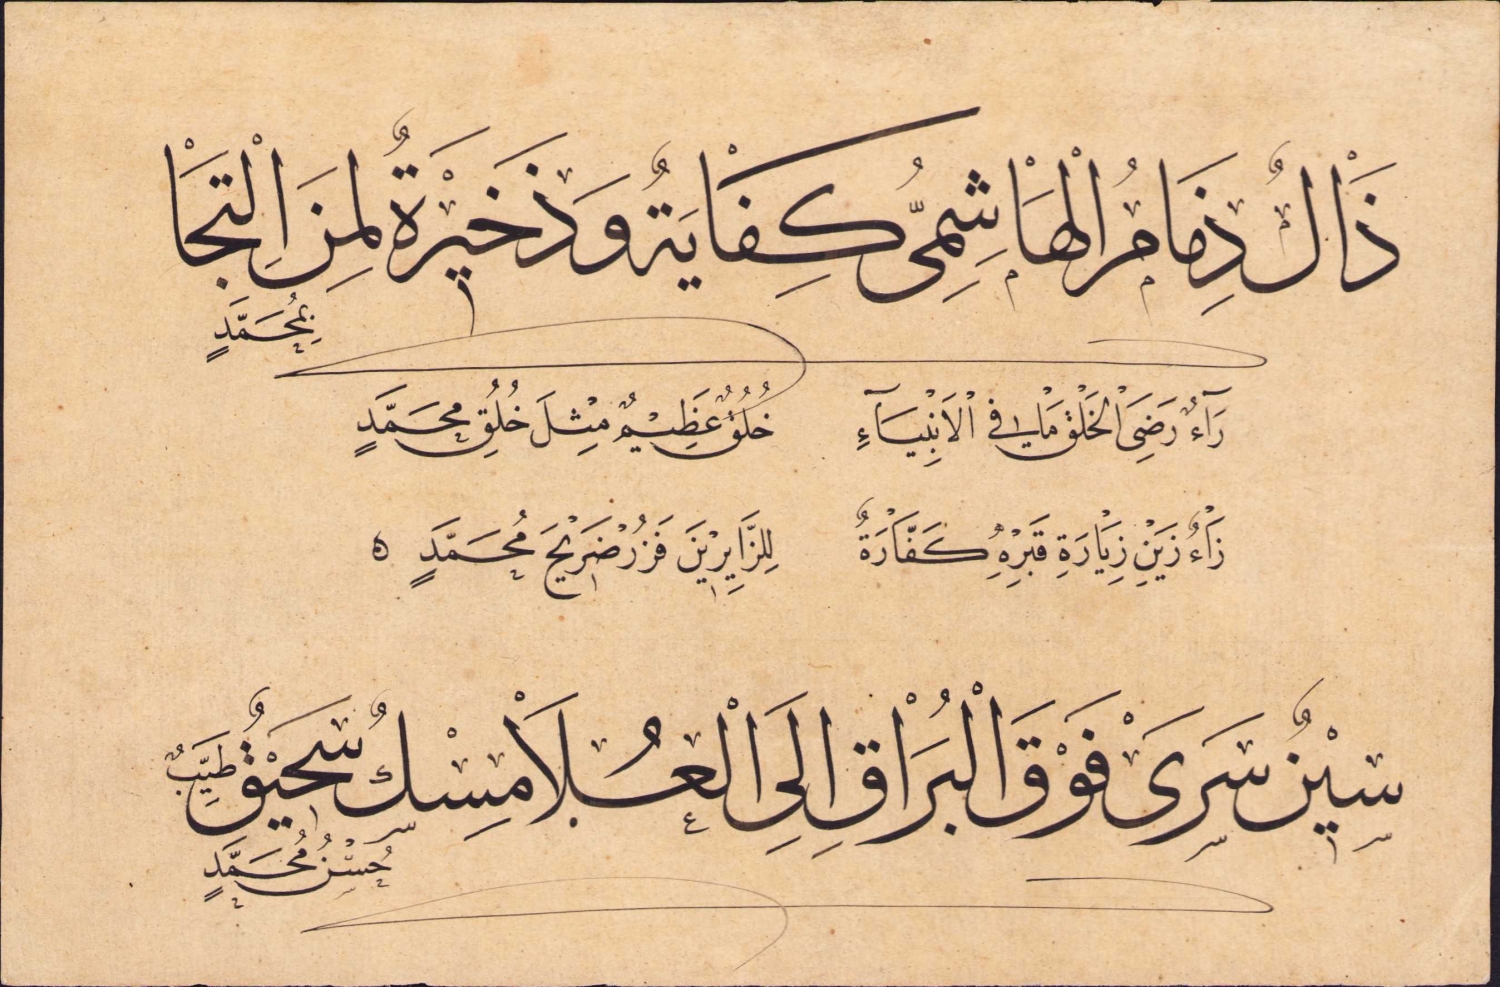 ذَالٌ ذِمَامُ الْهَاشِمِيِّ كِفَايَةٌ وَذَخِيْرَةٌ لِمَنِ الْتَجَا
بِمُحَمَّدٍ
رَآءٌ رَضِىَ الْخَلْقِ مَا فِي الْاَنْبِيَآءِ خُلُقٌ عَظِيْمٌ مِثْلَ خُلُقِ مُحَمَّدٍ
زَاءٌ زَيَنِ زِيَارَةِ قَبْرِهِ كَفَّارَةٌ لِلزَّايِرِيْنَ فَزُرْ ضَرِيْحَ مُحَمَّدٍ ه
سِيْنٌ سَرَىَ فَوْقَ الْبُرَاقِ اِلَى الْعُلَا مِسْكٌ سَحِيْقٌ طَيِّبٌ
حُسْنُ مُحَمَّدٍ